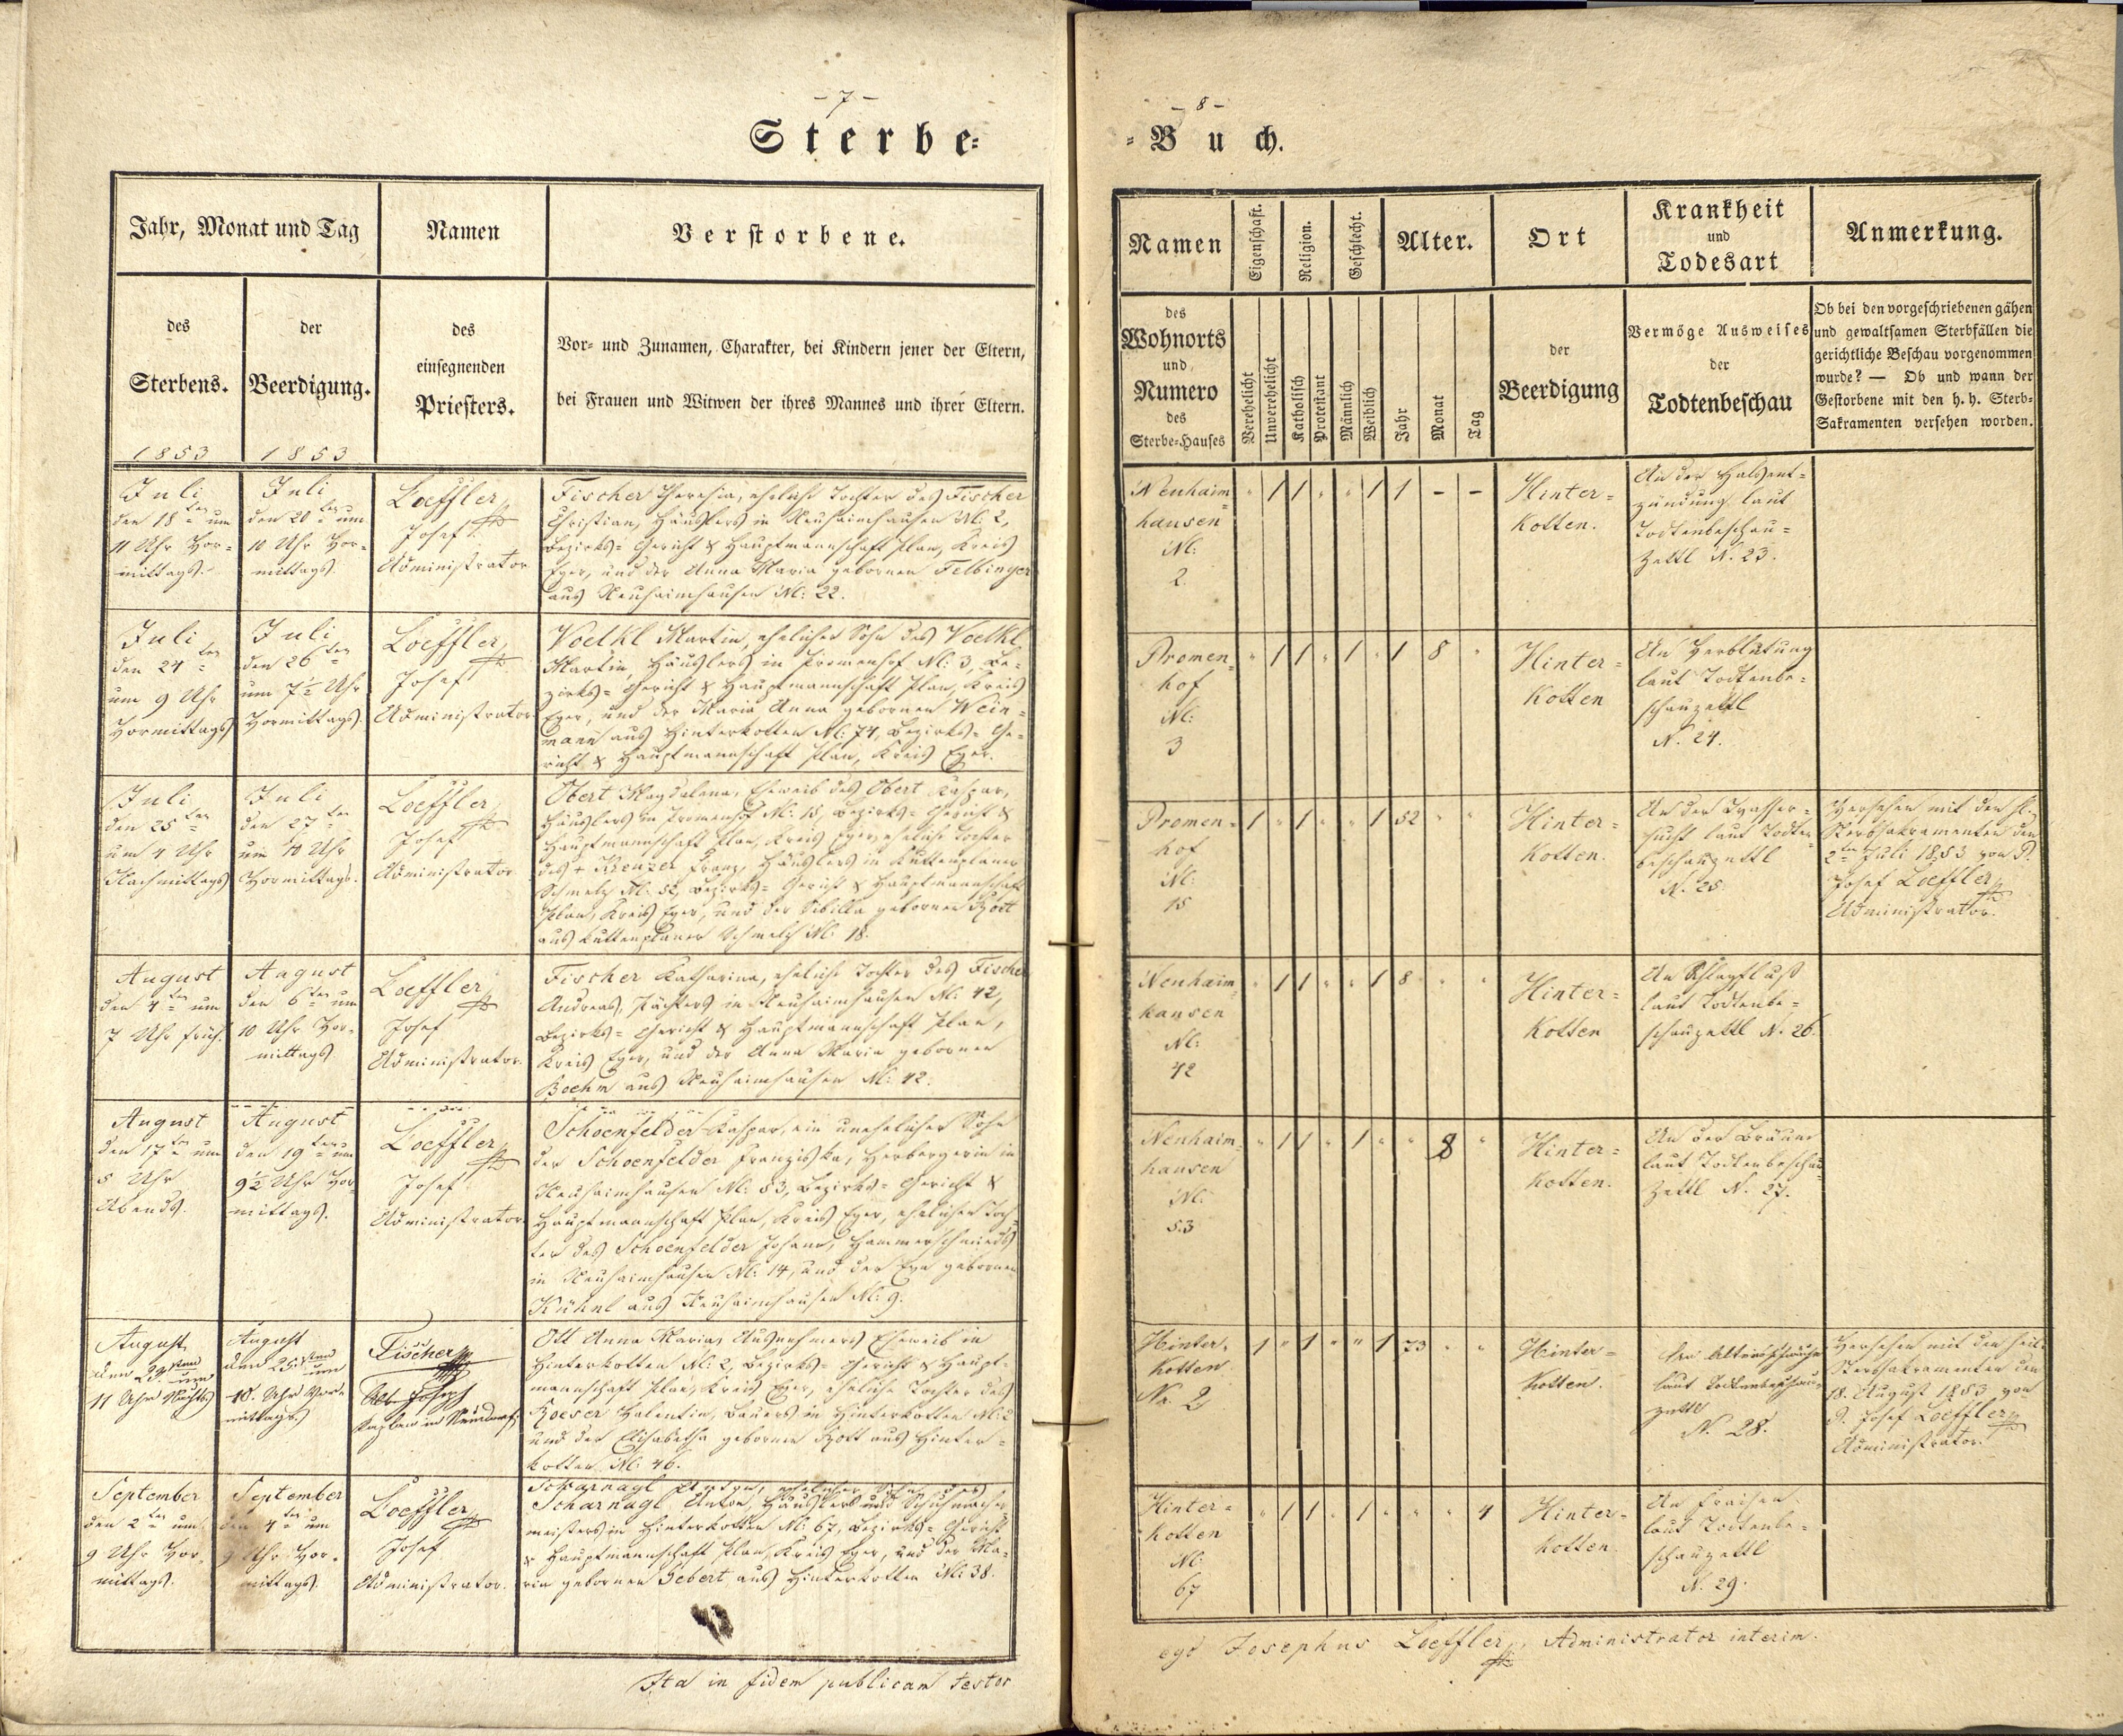 - 7 -
Sterbe-
Jahr, Monat und Tag
Namen
Verstorbene.
des
Sterbens.
der
Beerdigung.
des
einsegnenden
Priesters.
Vor- und Zunamen, Charakter, bei Kindern jener der Eltern,
bei Frauen und Witwen der ihres Mannes und ihrer Eltern.
1853
1853
Juli
den 18ten um
11 Uhr Vor-
mittags.
Juli
den 20ten um
10 Uhr Vor-
mittags.
Loeffler
Josef
Administrator
Fischer Theresia, eheliche Tochter des Fischer
Christian, Häuslers in Neuhaimhausen N: 2,
Bezirks-Gericht & Hauptmannschaft Plan, Kreis
Eger, und der Anna Maria gebornen Felbinger
aus Neuhaimhausen N: 22.
Juli
den 24ten
um 9 Uhr
Vormittags
Juli
den 26ten
um 7½ Uhr
Vormittags.
Loeffler
Josef
Administrator
Voelkl Martin, ehelicher Sohn des Voelkl
Martin, Häuslers in Promenhof N: 3, Be-
zirks-Gericht & Hauptmannschaft Plan, Kreis
Eger, und der Maria Anna gebornen Wein-
mann aus Hinterkotten N: 74, Bezirks-Ge-
richt & Hauptmannschaft Plan, Kreis Eger.
Juli
den 25ten
um 4 Uhr
Nachmittags
Juli
den 27ten
um 10 Uhr
Vormittags.
Loeffler
Josef
Administrator
Obert Magdalena, Eheweib des Obert Kaspar,
Häuslers in Promenhof N: 15, Bezirks-Gericht &
Hauptmannschaft Plan, Kreis Eger, eheliche Tochter
des + Kreuzer Franz, Häuslers in Kuttenplaner
Schmelz N: 52, Bezirks-Gericht & Hauptmannschaft
Plan, Kreis Eger, und der Sibilla gebornen
aus Kuttenplaner Schmelz N: 18.
August
den 4ten um
7 Uhr früh.
August
den 6ten um
10 Uhr Vor-
mittags.
Loeffler
Josef
Administrator.
Fischer Katharina, eheliche Tochter des Fischer
Andreas, Pächters in Neuhaimhausen N: 42,
Bezirks-Gericht & Hauptmannschaft Plan,
Kreis Eger, und der Anna Maria gebornen
Boehm aus Neuhaimhausen N: 42.
August
den 17ten um
5 Uhr
Abends.
August
den 19ten um
9½ Uhr Vor-
mittags.
Loeffler
Josef
Administrator.
Schoenfelder Kaspar, ein unehelicher Sohn
der Schoenfelder Franziska, Herbergerin in
Neuhaimhausen N: 53, Bezirks-Gericht &
Hauptmannschaft Plan, Kreis Eger, ehelichen Toch-
ter des Schoenfelder Johann, Hammerschmieds
in Neuhaimhausen N: 14, und der Eva gebornen
Kühnl aus Neuhaimhausen N: 9.
August
den 23sten um
11 Uhr Nachts
August
den 25sten um
10 Uhr Vor-
mittags.
Fischer
Joseph
Kaplan in
Ott Anna Maria, Ausnehmers Eheweib in
Hinterkotten N: 2, Bezirks-Gericht & Haupt-
mannschaft Plan, Kreis Eger, eheliche Tochter des
Roeser Valentin, Bauers in Hinterkotten N: 2
und der Elisabetha gebornen aus Hinter-
kotten N: 46.
September
den 2ten um
9 Uhr Vor-
mittags.
September
den 4ten um
9 Uhr Vor-
mittags.
Loeffler
Josef
Administrator.
Scharnagl ehelicher Sohn des
Scharnagl Anton, Häuslers und Schuhmacher-
meisters in Hinterkotten N: 67, Bezirks-Gericht
& Hauptmannschaft Plan, Kreis Eger, und der Ma-
ria gebornen Sebert aus Hinterkotten N: 38.
Ita in fidem publicam testor
- 8 -
-Buch.
Namen
Eigenschaft.
Religion.
Geschlecht.
Alter.
Ort
Krankheit
und
Todesart
Anmerkung.
des
Wohnorts
und
Numero
des
Sterbe-Hauses
Verehelicht
Unverehelicht
Katholisch
Protestant
Männlich
Weiblich
Jahr
Monat
Tag
der
Beerdigung
Vermöge Ausweises
der
Todtenbeschau
Ob bei den vorgeschriebenen gähen
und gewaltsamen Sterbfällen die
gerichtliche Beschau vorgenommen
wurde? — Ob und wann der
Gestorbene mit den h. h. Sterb-
Sakramenten versehen worden.
Neuhaim-
hausen
N:
2.
" 1 1 " " 1 1 - -
Hinter-
Kotten.
An der Halsent-
zündung laut
Todtenbeschau-
Zettl N. 23.
Promen-
hof
N:
3
" 1 1 " 1 " 1 8 "
Hinter-
Kotten
An Verblutung
laut Todtenbe-
schauzettl
N. 24.
Promen-
hof
N:
15
1 " 1 " " 1 52 " "
Hinter-
Kotten.
An der Wasser-
sucht laut Todten-
beschauzettl
N. 25.
Versehen mit den hl.
Sterbsakramenten den
2ten Juli 1853 von P.
Josef Loeffler
Administrator.
Neuhaim-
hausen
N:
42
" 1 1 " " 1 8 " "
Hinter-
Kotten
An Schlagfluß
laut Todtenbe-
schauzettl N. 26.
Neuhaim-
hausen
N:
53
" 1 1 " 1 " " 8 "
Hinter-
Kotten.
An der Bräune
laut Todtenbeschau-
Zettl N. 27.
Hinter-
Kotten
No. 2
1 " 1 " " 1 73 " "
Hinter-
Kotten.
An Altersschwäche
laut Todtenbeschau-
zettl
N. 28.
Versehen mit den heil.
Sterbsakramenten den
18. August 1853 von
P. Josef Loeffler
Administrator.
Hinter-
Kotten
N:
67
" 1 1 " 1 " " " 4
Hinter-
Kotten
An Fraisen
laut Todtenbe-
schauzettl
N. 29.
ego Josephus Loeffler, Administrator interim.